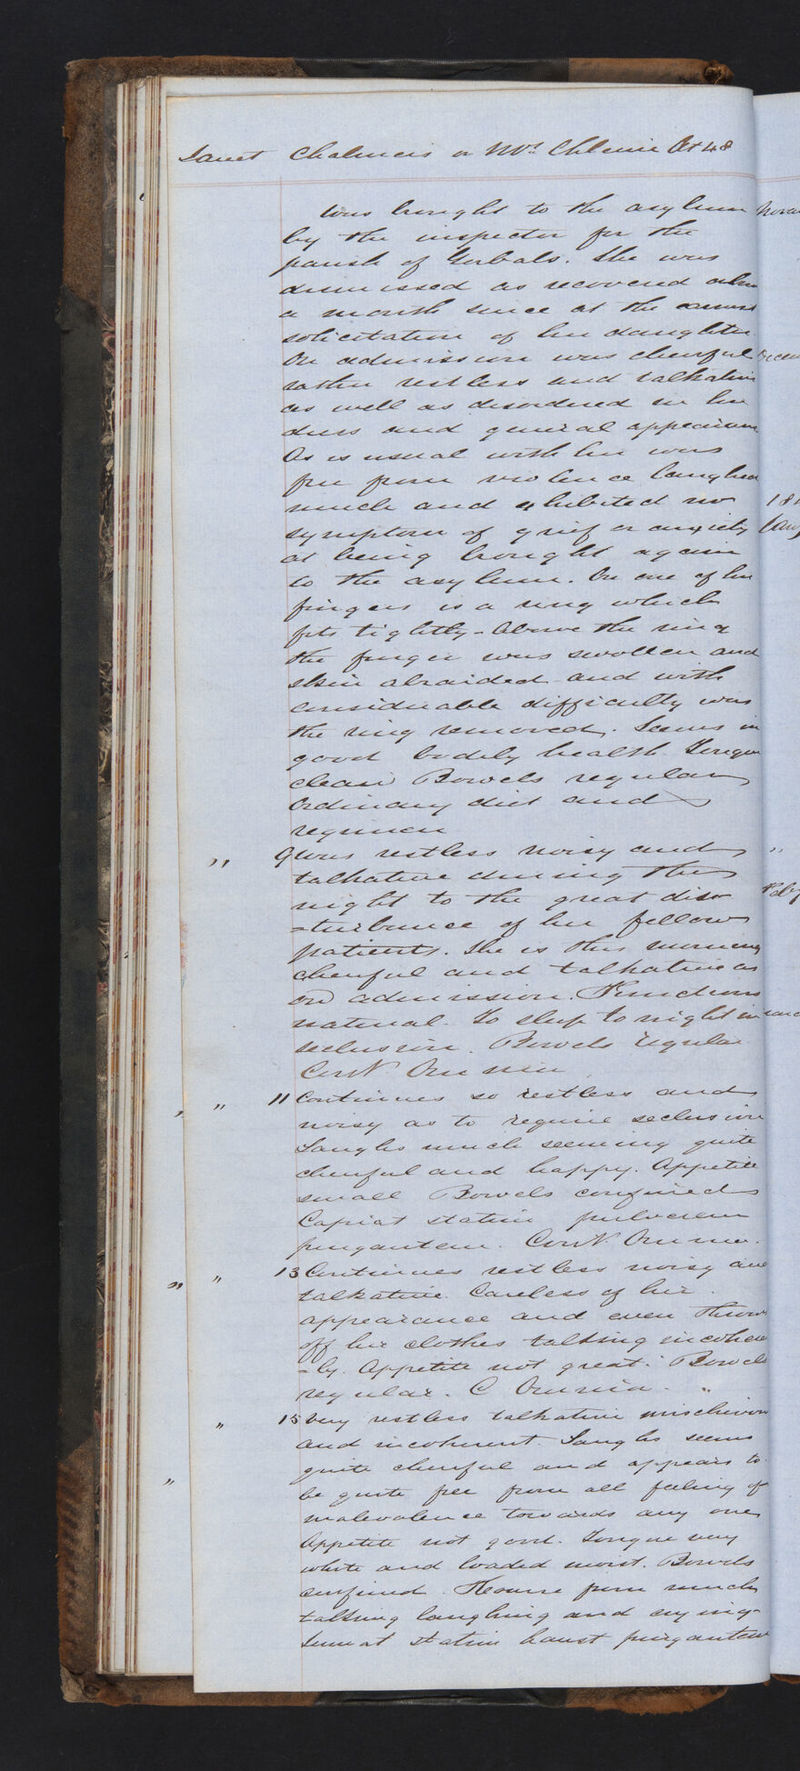 Janet Chalmers or Mrs Æt 48
Was brought to the asylum
by the inspector for the
parish of Gorbals. She was
dismissed as recovered about
a month since at the
solicitation of her daughter
On admission was cheerful
rather restless and talkative
as well as disordered in her
dress and general appearance
As is usual with her was
free from violence laughed
much and exhibited no
symptom of grief or anxiety
at being brought again
to the asylum. On one of her
fingers is a ring which
fits tightly - Above the ring
the finger was swollen and
skin abraided and with
considerable difficulty was
the ring removed. Seems in
good bodily health Tongue
clean Bowels regular
Ordinary diet and
regimen
" 9 Was restless noisy and
talkative during the
night to the great dis
=turbance of her fellow
patients. She is this morning
cheerful and talkative as
on admission. Functions
natural. To sleep to night in
seclusion. Bowels regular
Cont Omnia
" " 11 Continues so restless and
noisy as to require seclusion
Laughs much seeming quite
cheerful and happy. Appetite
small Bowels confined
Capiat statim pulverem
purgantem. Cont. Omnia.
" " 13 Continues restless noisy and
talkative. Careless of her
appearance and even throws
off her clothes talking incoher
=ly. Appetite not great. Bowels
regular. C Omnia. "
" 15 Very restless talkative mischievous
and incoherent. Laughs seems
quite cheerful and appears to
" be quite free from all feeling of
malevolence towards any one
Appetite not good. Tongue very
white and loaded moist. Bowels
confined. Hoarse from much
talking laughing and crying
Sumat statim haust purgantem